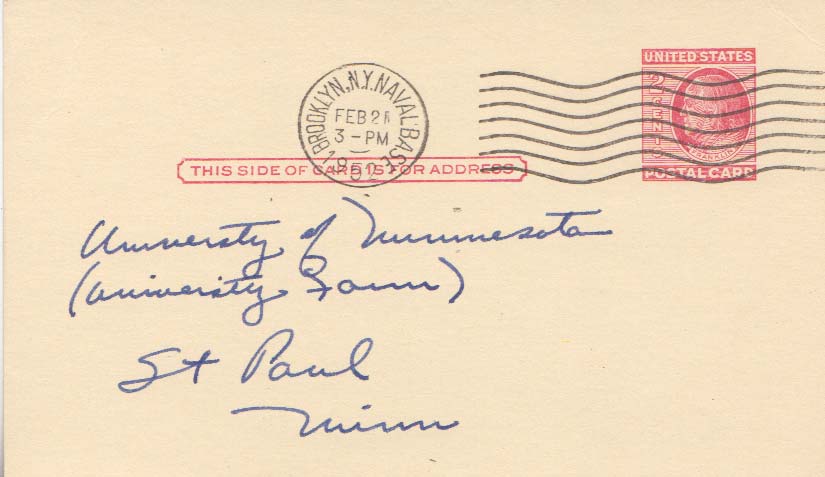 UNITED STATES
2 CENTS
FRANKLIN
POSTAL CARD
BROOKLYN, N.Y. NAVAL BASE
FEB 21
3 - PM
1952
THIS SIDE OF CARD IS FOR ADDRESS
University of Minnesota
(University Farm)
St Paul
Minn